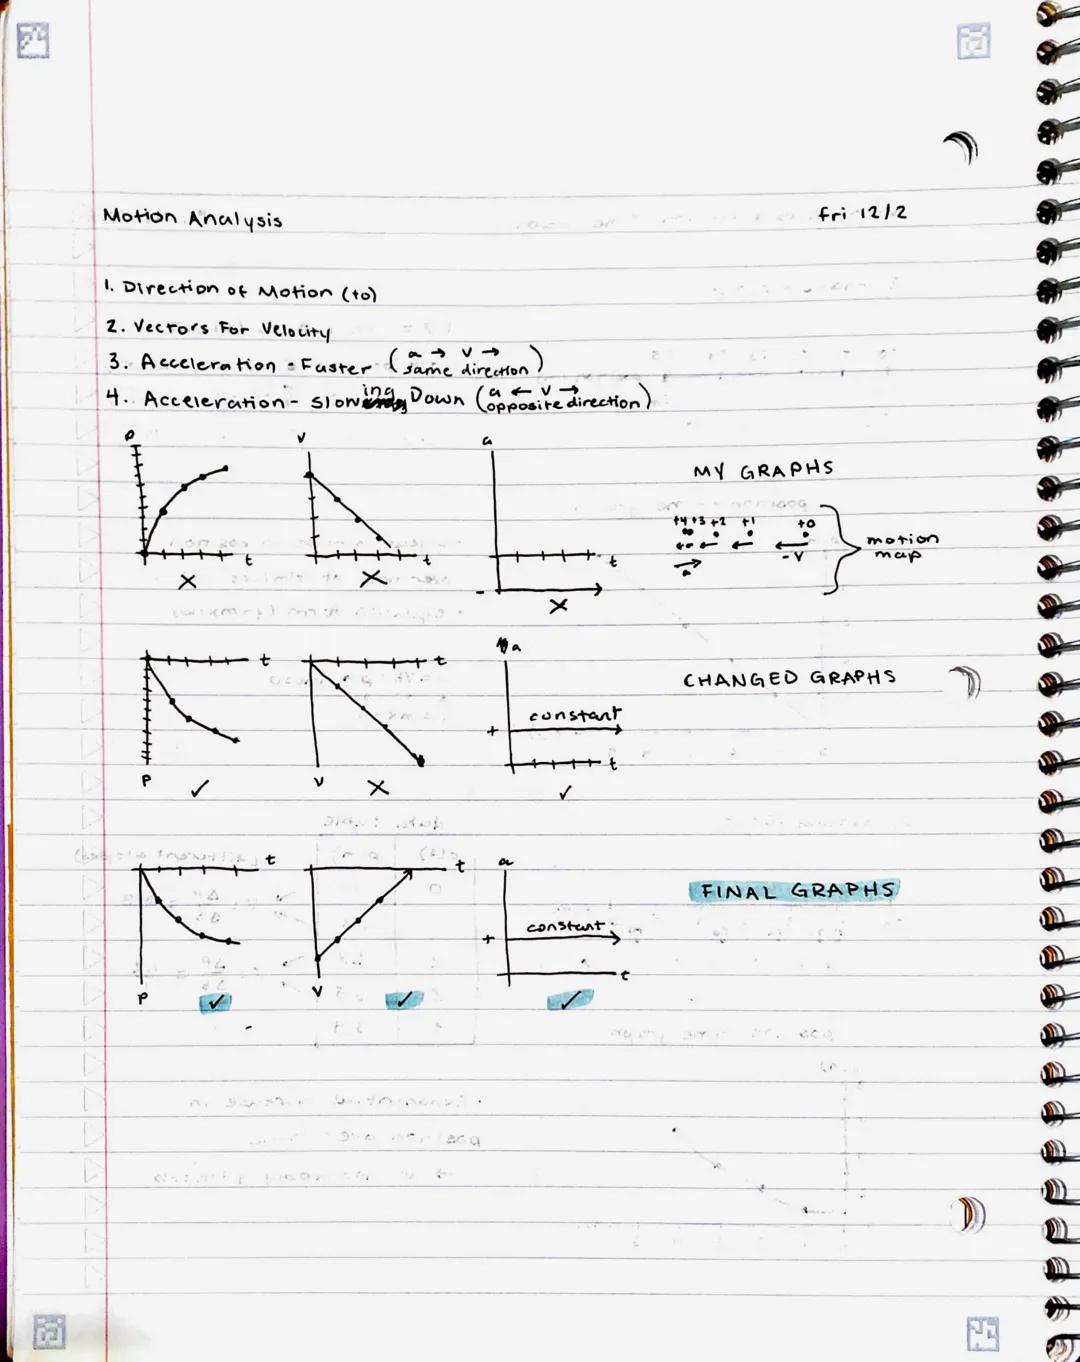 Motion Analysis
fri 12/2
1. Direction of Motion (to)
2. Vectors For Velocity
3. Acceleration - Faster (a → v → same direction)
4. Acceleration - slowing Down (a ← v → opposite direction)
P
v
a
MY GRAPHS
+4 +3 +2 +1 +0
-v
a
motion
map
t
t
t
-
x
x
x
t
t
a
CHANGED GRAPHS
constant
+
t
P
v
✓
x
✓
t
t
a
FINAL GRAPHS
constant
+
t
P
v
✓
✓
✓